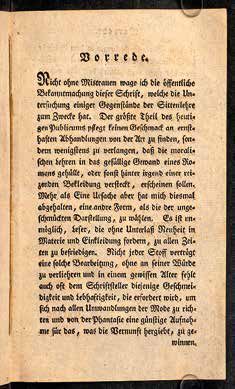 Vorrede.
Nicht ohne Mistrauen wage ich die öffentliche
Bekanntmachung dieser Schrift, welche die Un-
tersuchung einiger Gegenstände der Sittenlehre
zum Zwecke hat. Der größte Theil des heuti-
gen Publicums pflegt keinen Geschmack an ernst-
haften Abhandlungen von der Art zu finden, son-
dern wenigstens zu verlangen, daß die morali-
schen Lehren in das gefällige Gewand eines Ro-
mens gehüllt, oder sonst hinter irgend einer rei-
zenden Bekleidung versteckt, erscheinen sollen.
Mehr als Eine Ursache aber hat mich diesmal
abgehalten, eine andre Form, als die der unge-
schmückten Darstellung, zu wählen. Es ist un-
möglich, Leser, die ohne Unterlaß Neuheit in
Materie und Einkleidung fordern, zu allen Zei-
ten zu befriedigen. Nicht jeder Stoff verträgt
eine solche Bearbeitung, ohne an seiner Würde
zu verliehren und in einem gewissen Alter fehlt
auch oft dem Schriftsteller diejenige Geschmei-
digkeit und Lebhaftigkeit, die erfordert wird, um
sich nach allen Umwandlungen der Mode zu rich-
ten und von der Phantasie eine günstige Aufnah-
me für das, was die Vernunft hergiebt, zu ge-
winnen.